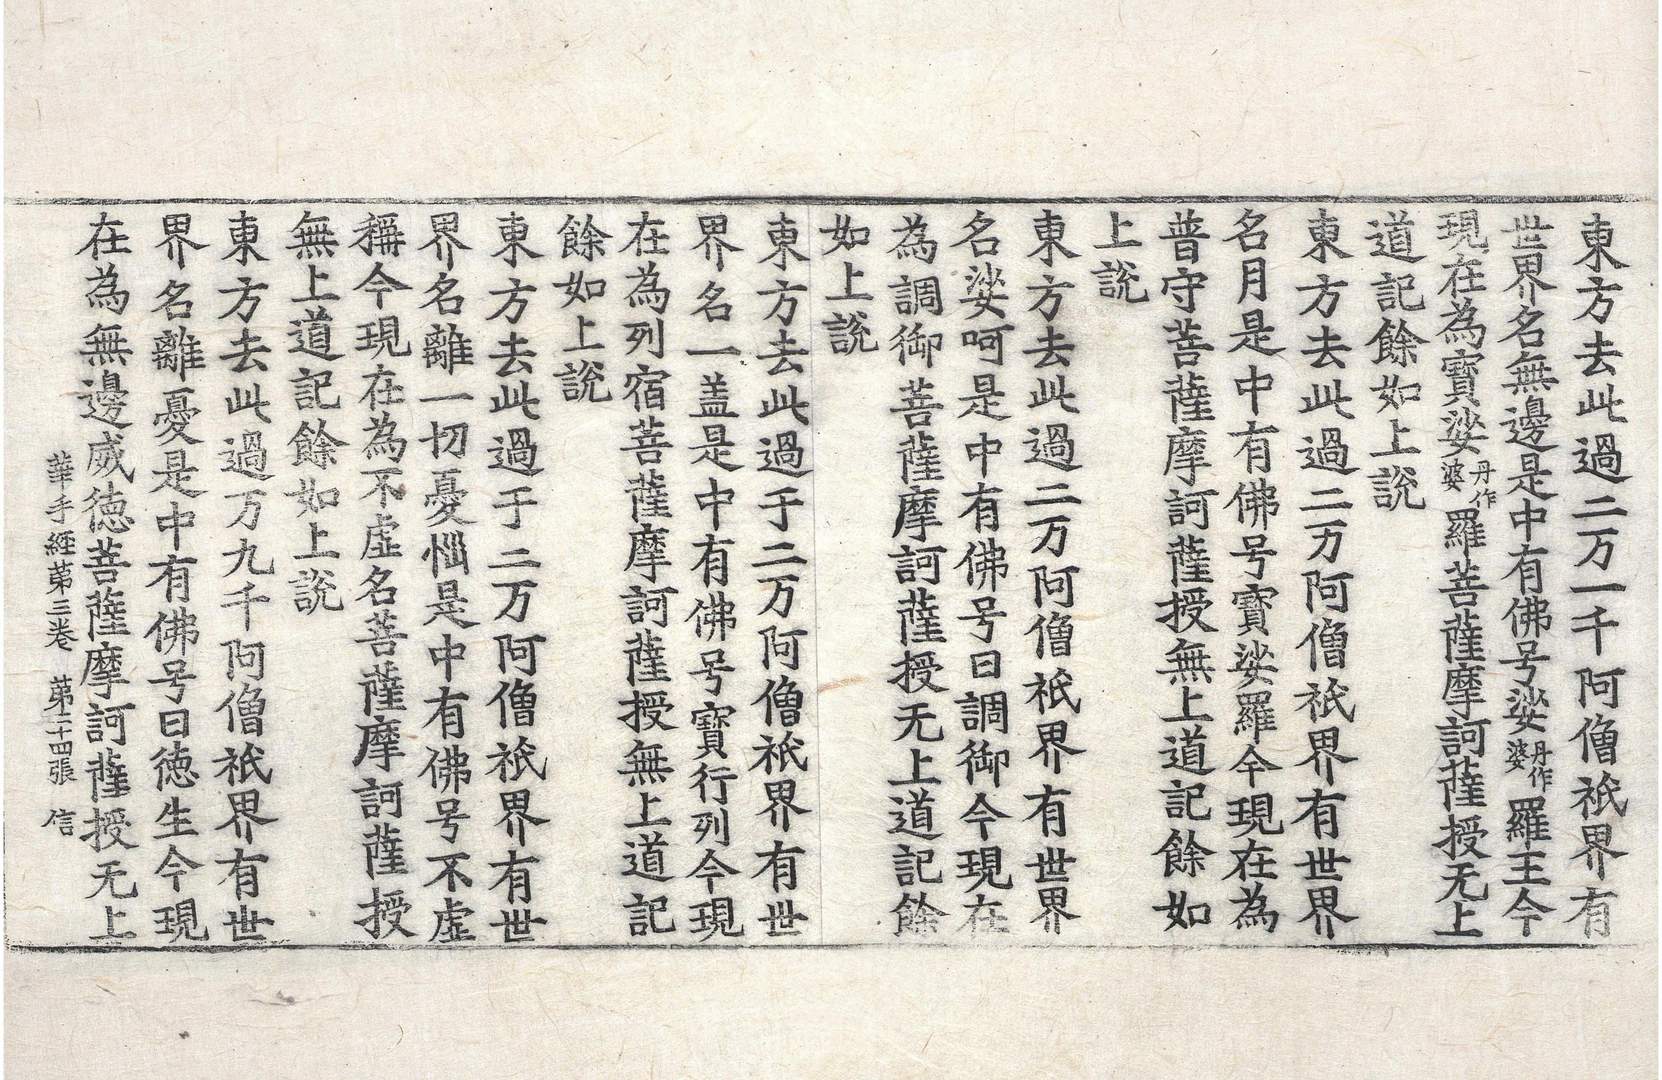 東方去此過二万一千阿僧祇界有
世界名無邊是中有佛号娑丹作婆羅王今
現在為寶娑丹作婆羅菩薩摩訶薩授无上
道記餘如上說
東方去此過二万阿僧祇界有世界
名月是中有佛号寶娑羅今現在為
普守菩薩摩訶薩授無上道記餘如
上說
東方去此過二万阿僧祇界有世界
名娑呵是中有佛号曰調御今現在
為調御菩薩摩訶薩授无上道記餘
如上說
東方去此過于二万阿僧祇界有世
界名一盖是中有佛号寶行列今現
在為列宿菩薩摩訶薩授無上道記
餘如上說
東方去此過于二万阿僧祇界有世
界名離一切憂惱是中有佛号不虛
稱今現在為不虛名菩薩摩訶薩授
無上道記餘如上說
東方去此過万九千阿僧祇界有世
界名離憂是中有佛号曰徳生今現
在為無邊威徳菩薩摩訶薩授无上
華手經第三卷 第二十四張 信